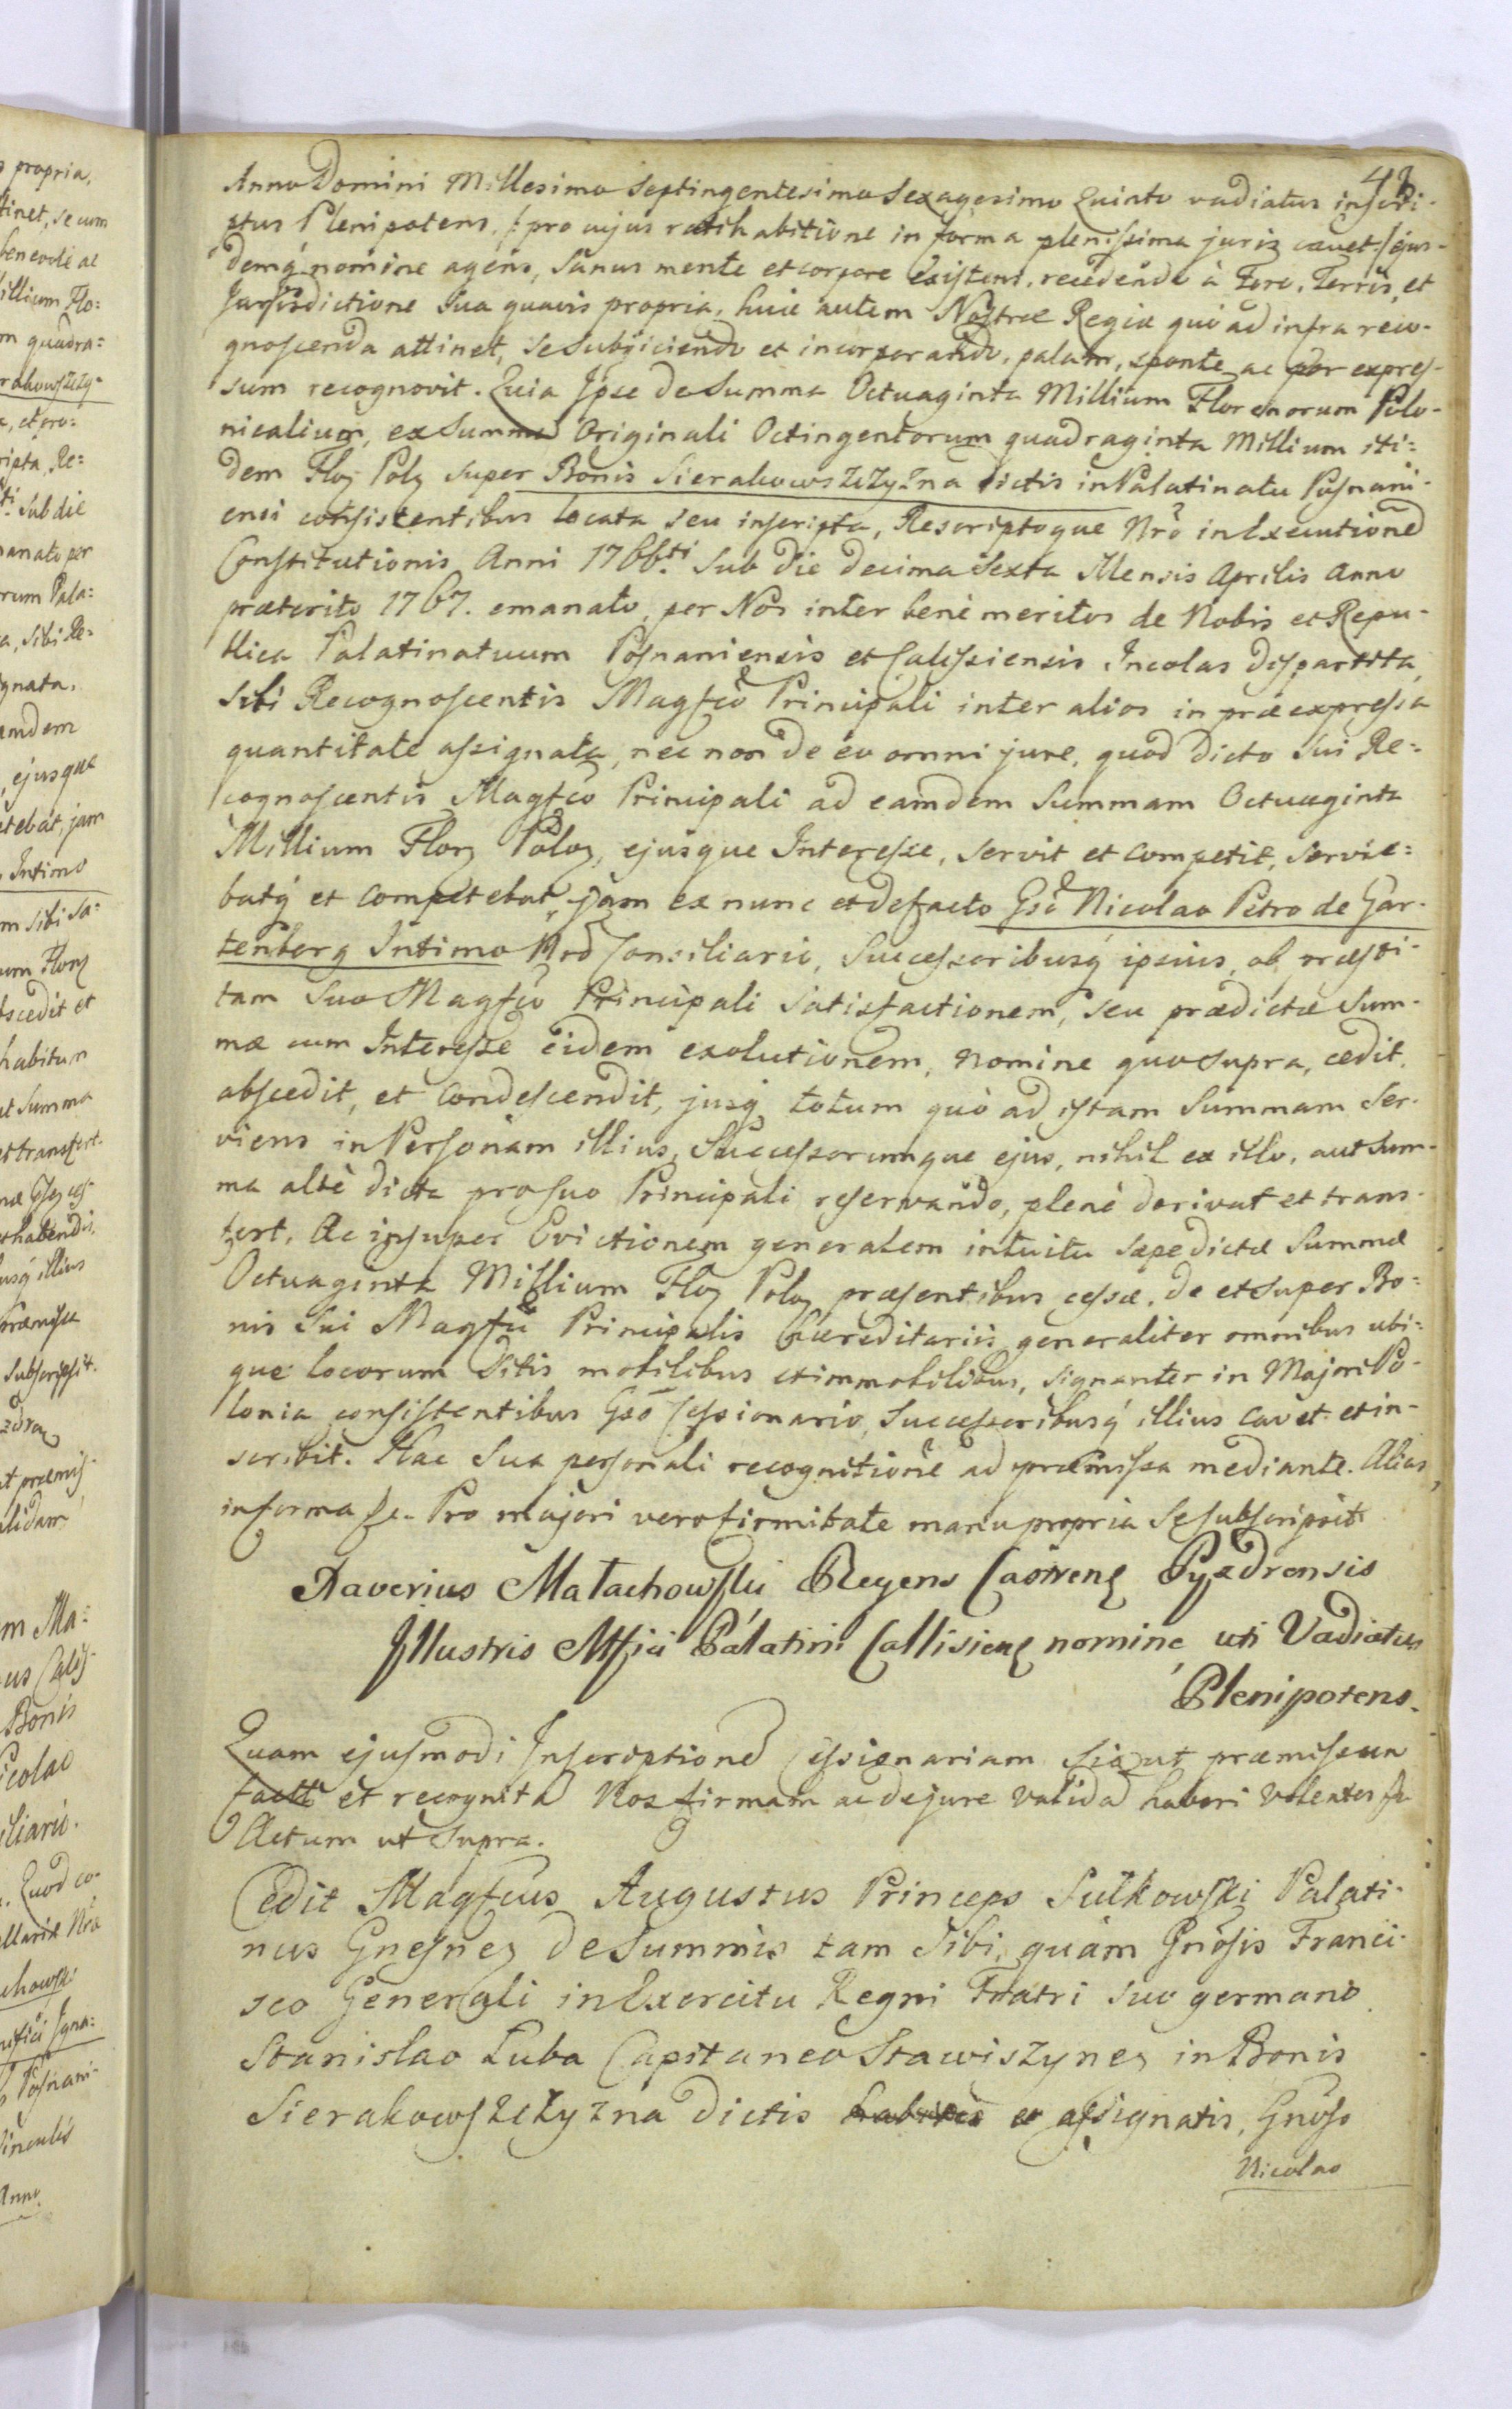 42
Anno Domini Millesimo Septingentesimo Sexagesimo Quinto vadiatus inscri-
ptus Plenipotens, /: pro cujus ratihabitione in forma plenissima juris cavet :/ ejus-
demq́ nomine agens, Sanus mente et corpore existens, recedendo à Foro, Terris, et
Jurisdictione Sua quavis propria, huic autem Nostræ Regiæ quò ad infra reco-
gnoscenda attinet, Se Subjiciendo et incorporando, palam, sponte ac per expres-
sum recognovit. Quia Ipse de Summa Octuaginta Millium Florenorum Polo-
nicalium, ex Summa Originali Octingentorum quadraginta Millium iti=
dem Flor Pol Super Bonis Sierakowszczyzna dictis in Palatinatu Posnani-
ensi consistentibus locata seu inscripta, Rescriptoque Nrõ in Executione
Constitutionis Anni 1766.ti Sub die decima Sexta Mensis Aprilis Anno
præterito 1767. emanato, per Nos inter benè meritos de Nobis et Repu-
blica Palatinatuum Posnaniensis et Calissiensis Incolas dispartita,
Sibi Recognoscentis Magfco Principali inter alios in præexpressa
quantitate assignata, nec non de eo omni jure, quod dicto Sui Re=
cognoscentis Magfco Principali ad eamdem Summam Octuaginta
Millium Flor Polo, ejusque Interesse, servit et competit, servie=
batq́ et competebat, jam ex nunc et defacto Gsõ Nicolao Petro de Gar-
tenberg Intimo Nrõ Consiliario, Successoribusq́ ipsius, ob præsti-
tam Suo Magfco Principali Satisfactionem, seu prædictæ Sum-
mæ cum Interesse eidem exolutionem, nomine quo supra, cedit,
abscedit, et condescendit, jusq́ totum quò ad istam Summam Ser-
viens in Personam illius, Successorumque ejus, nihil ex illo, aut Sum-
ma altè dicta pro suo Principali reservando, plenè derivat et trans-
fert. Ac insuper Evictionem generalem intuitu sæpe dictæ Summæ
Octuaginta Millium Flo Polo præsentibus cessæ, de et super Bo=
nis Sui Magfci Principalis hæreditariis generaliter omnibus ubi=
que locorum Sitis mobilibus et immobilibus, signanter in Majori Po-
lonia consistentibus Gsõ Cessionario, Successoribusq́ illius cavet et in-
scribit. Hac Sua personali recognitione ad præmissa mediante. Alias
in forma &c. Pro majori vero firmitate manu propria Se subscripsit.
Xaverius Małachowski Regens Castren Pyzdrensis
Illustris Mfici Palatini Callisien nomine uti Vadiatus
Plenipotens.
Quam ejusmodi Inscriptione Cessionariam sic ut præmissum
facta et recognita Nos firmam ac de jure valida haberi volentes &c
Actum ut supra.
Cedit Magfcus Augustus Princeps Sułkowski Palati-
nus Gnesnen de Summis tam Sibi, quàm Gnosis Franci-
sco Generali in Exercitu Regni Fratri suo germano
Stanislao Łuba Capitaneo Stawiszynen in Bonis
Sierakowszczyzna dictis assignatis, Gnoso
Nicolao